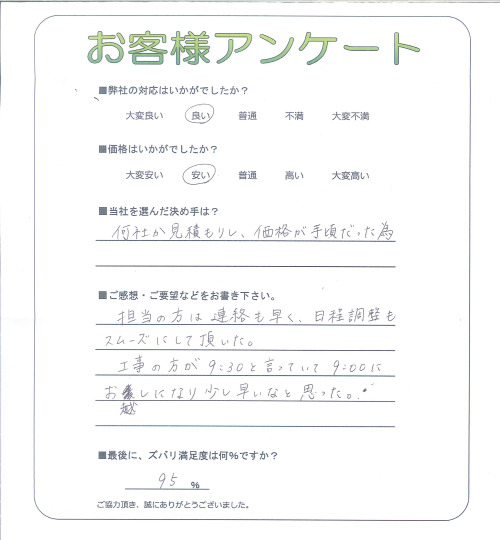 お客様アンケート
■弊社の対応はいかがでしたか？
大変良い 良い 普通 不満 大変不満
■価格はいかがでしたか？
大変安い 安い 普通 高い 大変高い
■当社を選んだ決め手は？
何社か見積もりし、価格が手頃だった為
■ご感想・ご要望などをお書き下さい。
担当の方は連絡も早く、日程調整も
スムーズにして頂いた。
工事の方が9:30と言っていて9:00に
お越しになり少し早いなと思った。
■最後に、ズバリ満足度は何％ですか？
95 %
ご協力頂き、誠にありがとうございました。